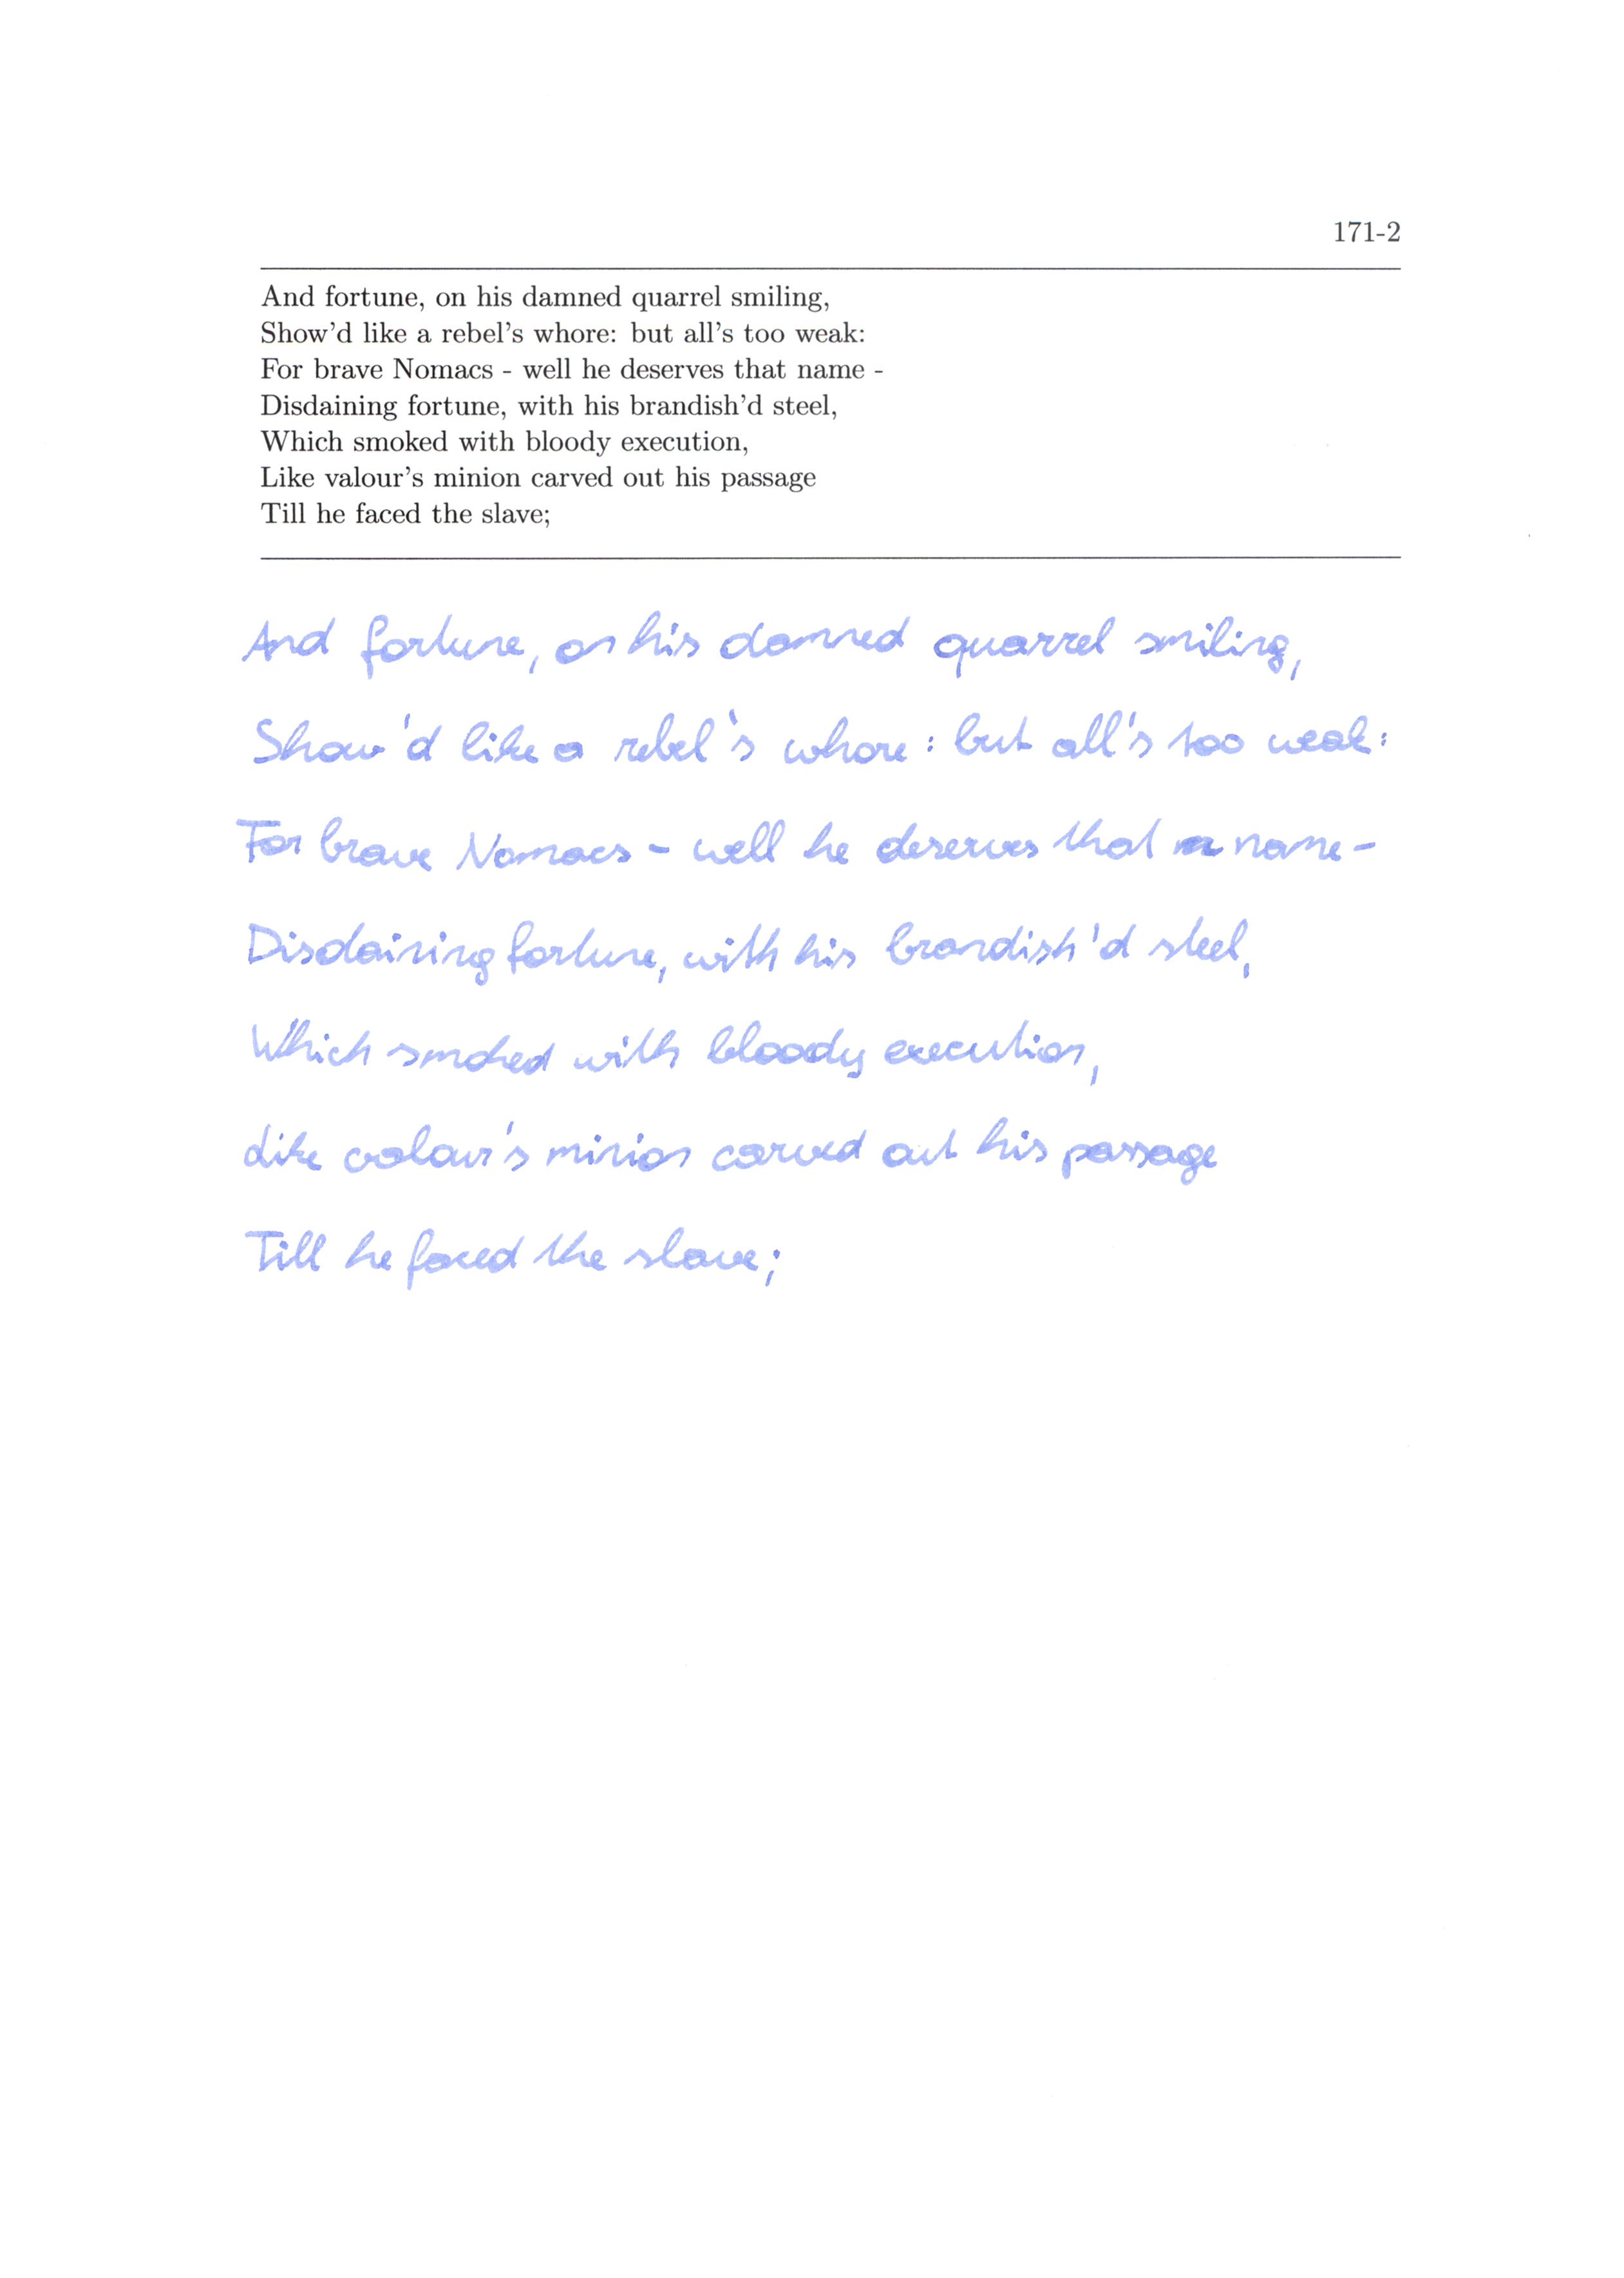 171-2
And fortune, on his damned quarrel smiling,
Show'd like a rebel's whore: but all's too weak:
For brave Nomacs - well he deserves that name -
Disdaining fortune, with his brandish'd steel,
Which smoked with bloody execution,
Like valour's minion carved out his passage
Till he faced the slave;
And fortune, on his damned quarrel smiling,
Show'd like a rebel's whore: but all's too weak:
For brave Nomacs - well he deserves that name -
Disdaining fortune, with his brandish'd steel,
Which smoked with bloody execution,
Like valour's minion carved out his passage
Till he faced the slave;